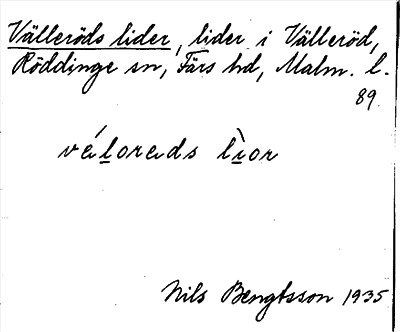 Välleröds lider, lider i Välleröd,
Röddinge sn, Färs hd, Malm. l.
89.
vélorads lior
Nils Bengtsson 1935